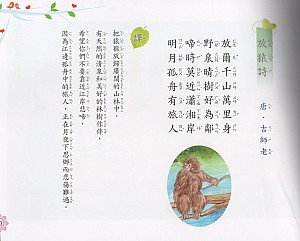 放猿詩
唐．古師老
放爾千山萬里身
野泉晴樹好為鄰
啼時莫近瀟湘岸
明月孤舟有旅人
譯
把猿猴放歸廣闊的山林中，
有天然的清泉和美好的樹林作伴，
希望你們不要靠近江岸悲啼，
因為江邊孤舟中的旅人，正在月夜下思鄉而悲傷難過。